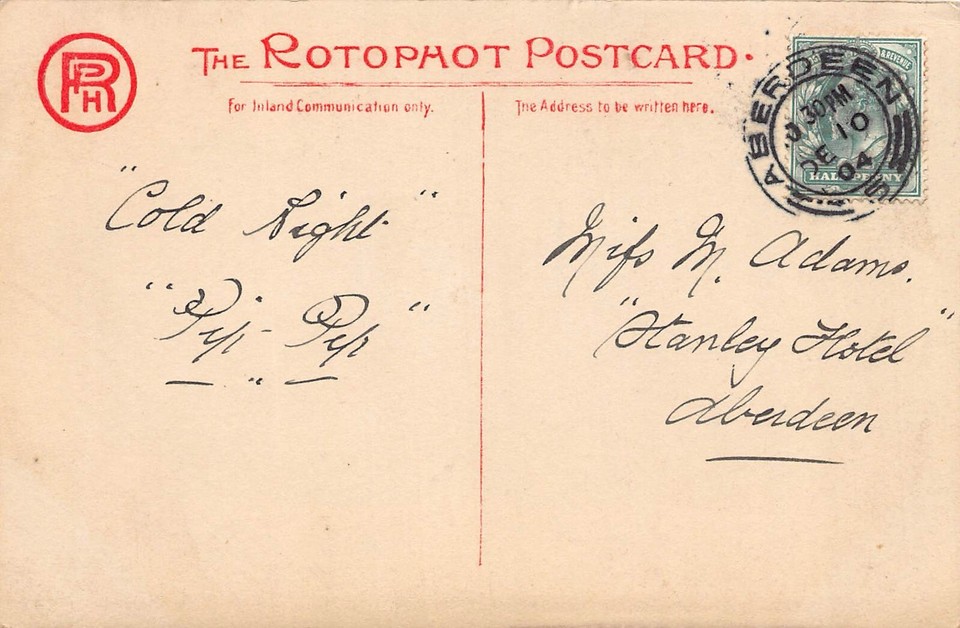 RPH
THE ROTOPHOT POSTCARD.
For Inland Communication only.
The Address to be written here.
& REVENUE
HALFPENNY
ABERDEEN
30PM
DE 10
04
"Cold Night"
"Pip-Pip"
Miss M. Adams.
"Stanley Hotel"
Aberdeen